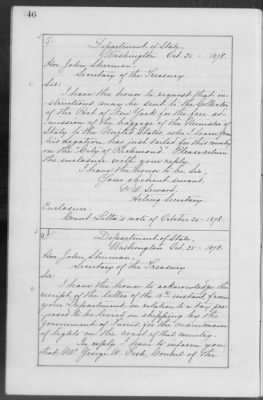 46
Department of State,
Washington Oct. 25 - 1878.
Hon John Sherman,
Secretary of the Treasury
Sir:
I have the honor to request that in-
structions may be sent to the Collector
of the Port of New York for the free ad-
mission of the baggage of the Minister of
Italy to the United States, who I learn from
his Legation, has just sailed for this country
on the "City of Richmond". Please return
the enclosure with your reply.
I have the honor to be, Sir,
Your obedient servant,
F. W. Seward,
Acting Secretary.
Enclosure.
Count Litta's note of October 24 - 1878.
Department of State,
Washington Oct. 25 - 1878.
Hon. John Sherman,
Secretary of the Treasury
Sir:
I have the honor to acknowledge the
receipt of the letter of the instant from
your Department in relation to a tax pro-
posed to be levied on shipping by the
Government of Tunis, for the maintenance
of lights on the coast of that country.
In reply I have to inform you
that Mr George W. Fish, Consul of the